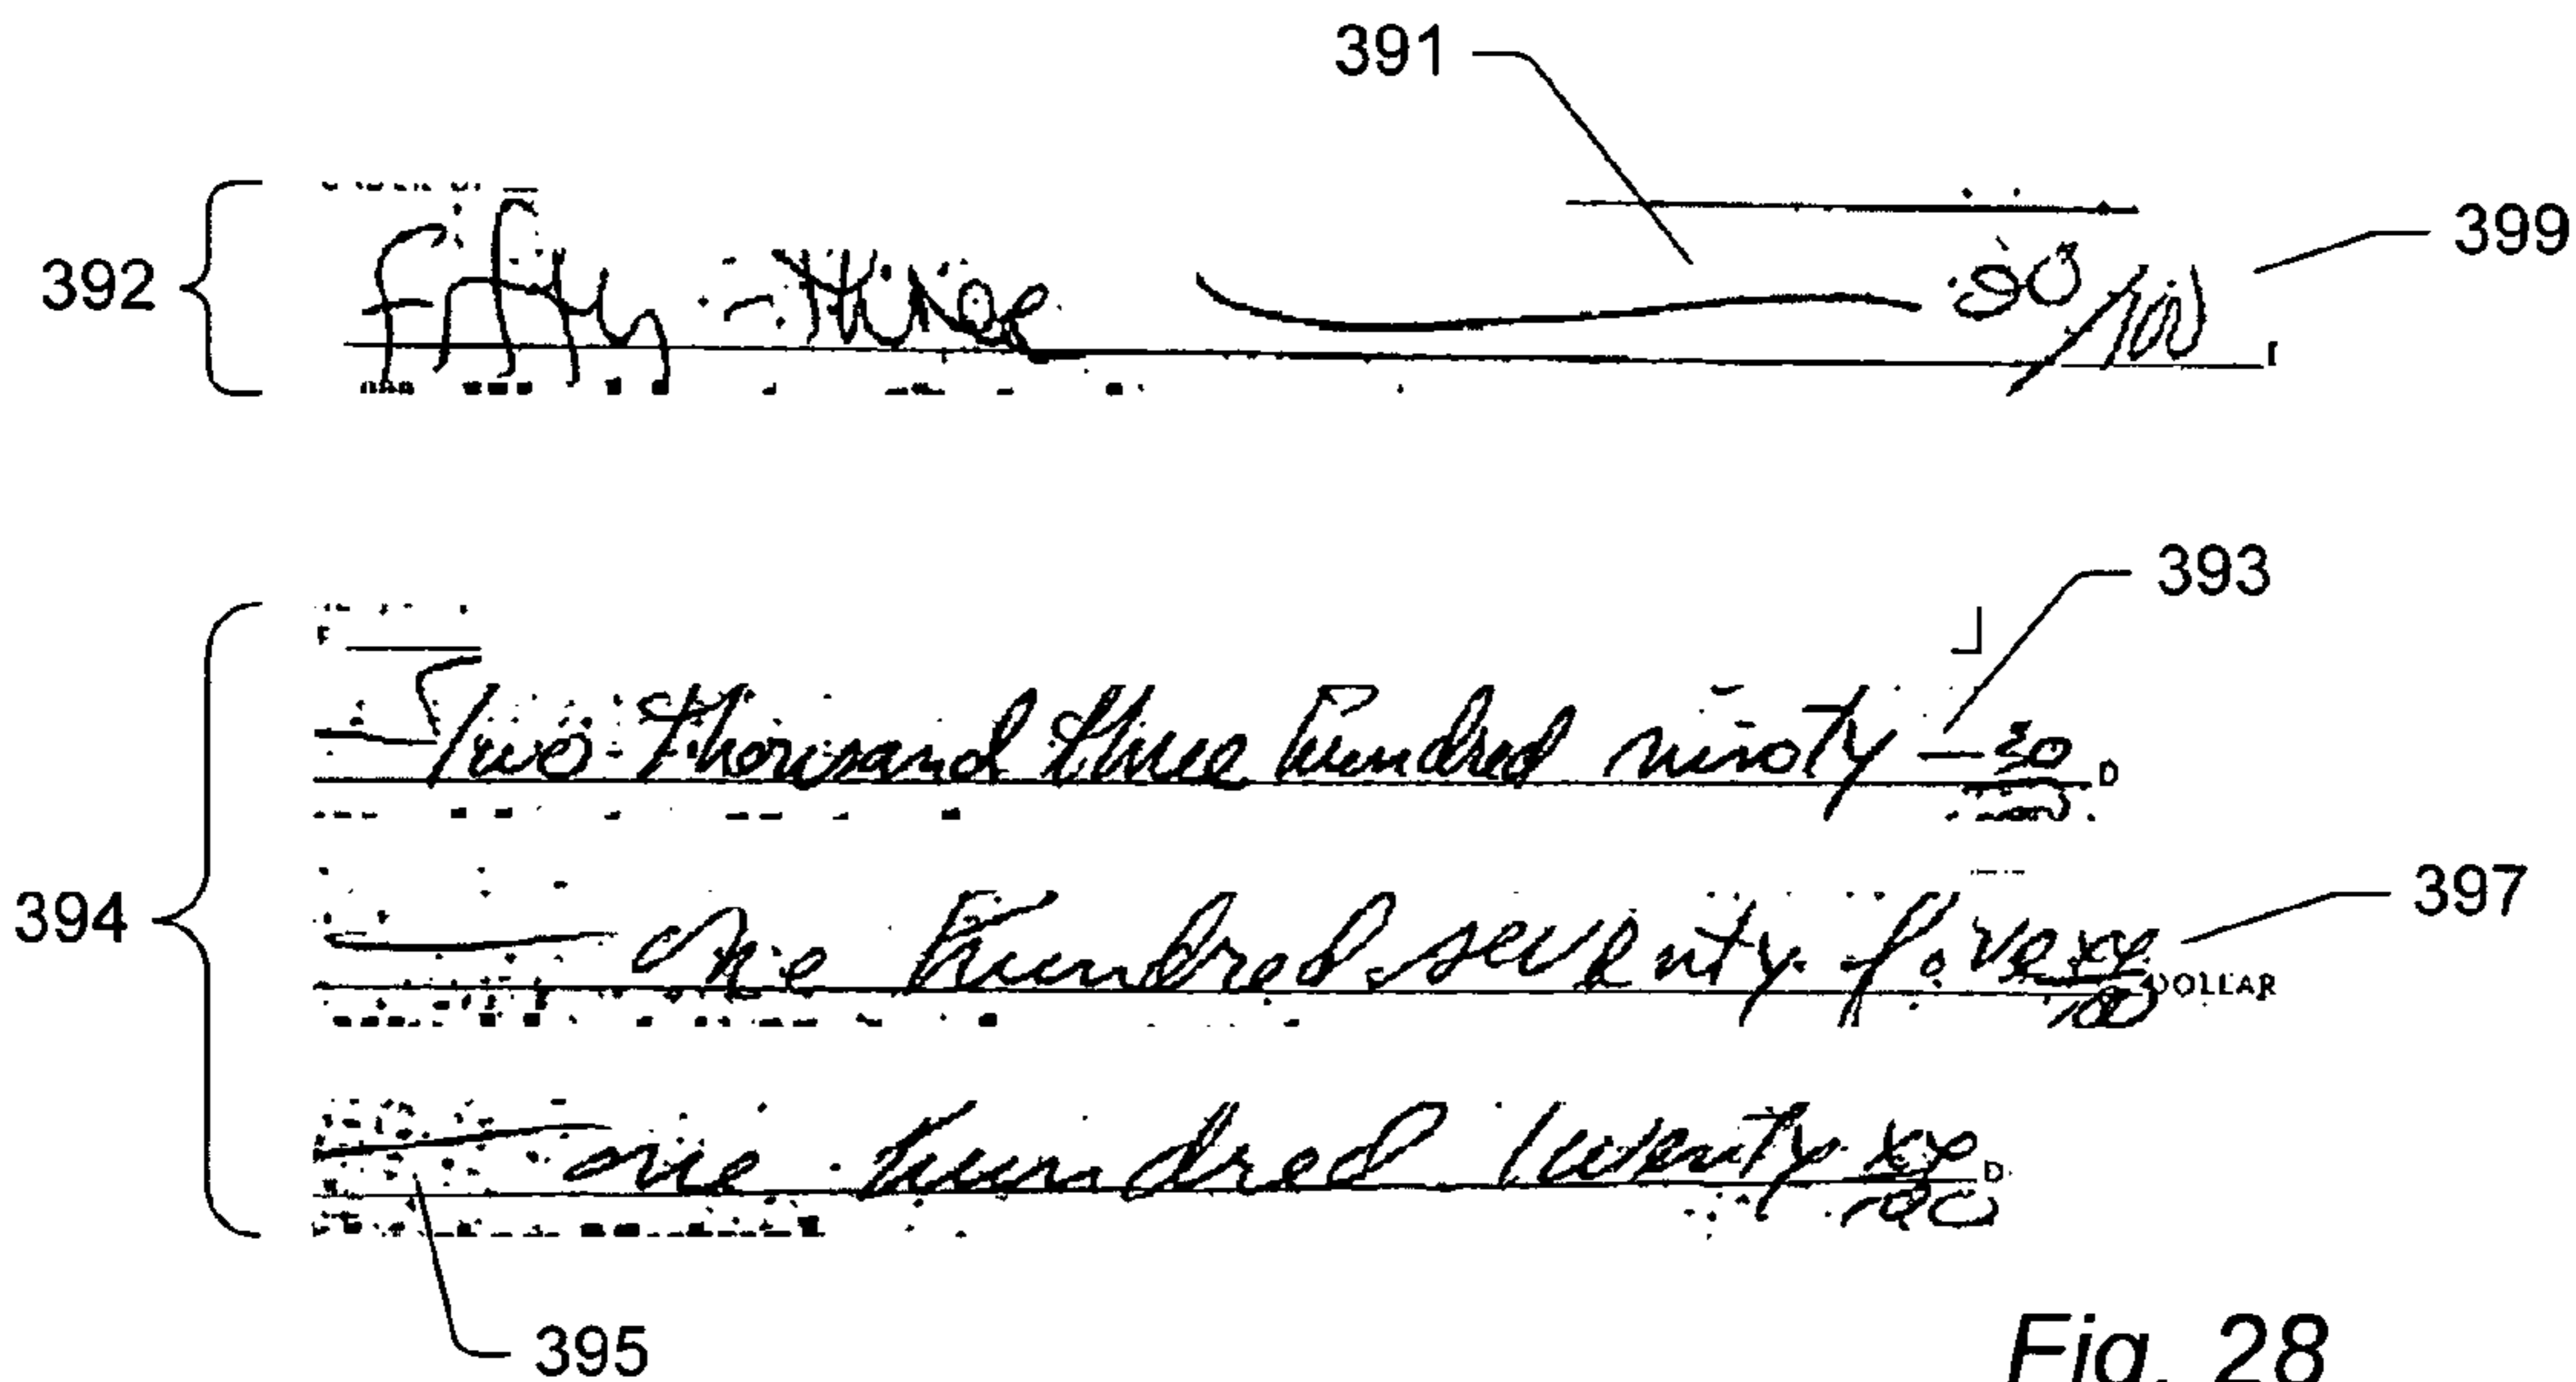 391
399
392
Fifty - three 90/100
393
Two thousand three hundred ninety — 30 D
394
397
one hundred seventy five xx/100 DOLLAR
one hundred twenty xx/100 D
395
Fig. 28